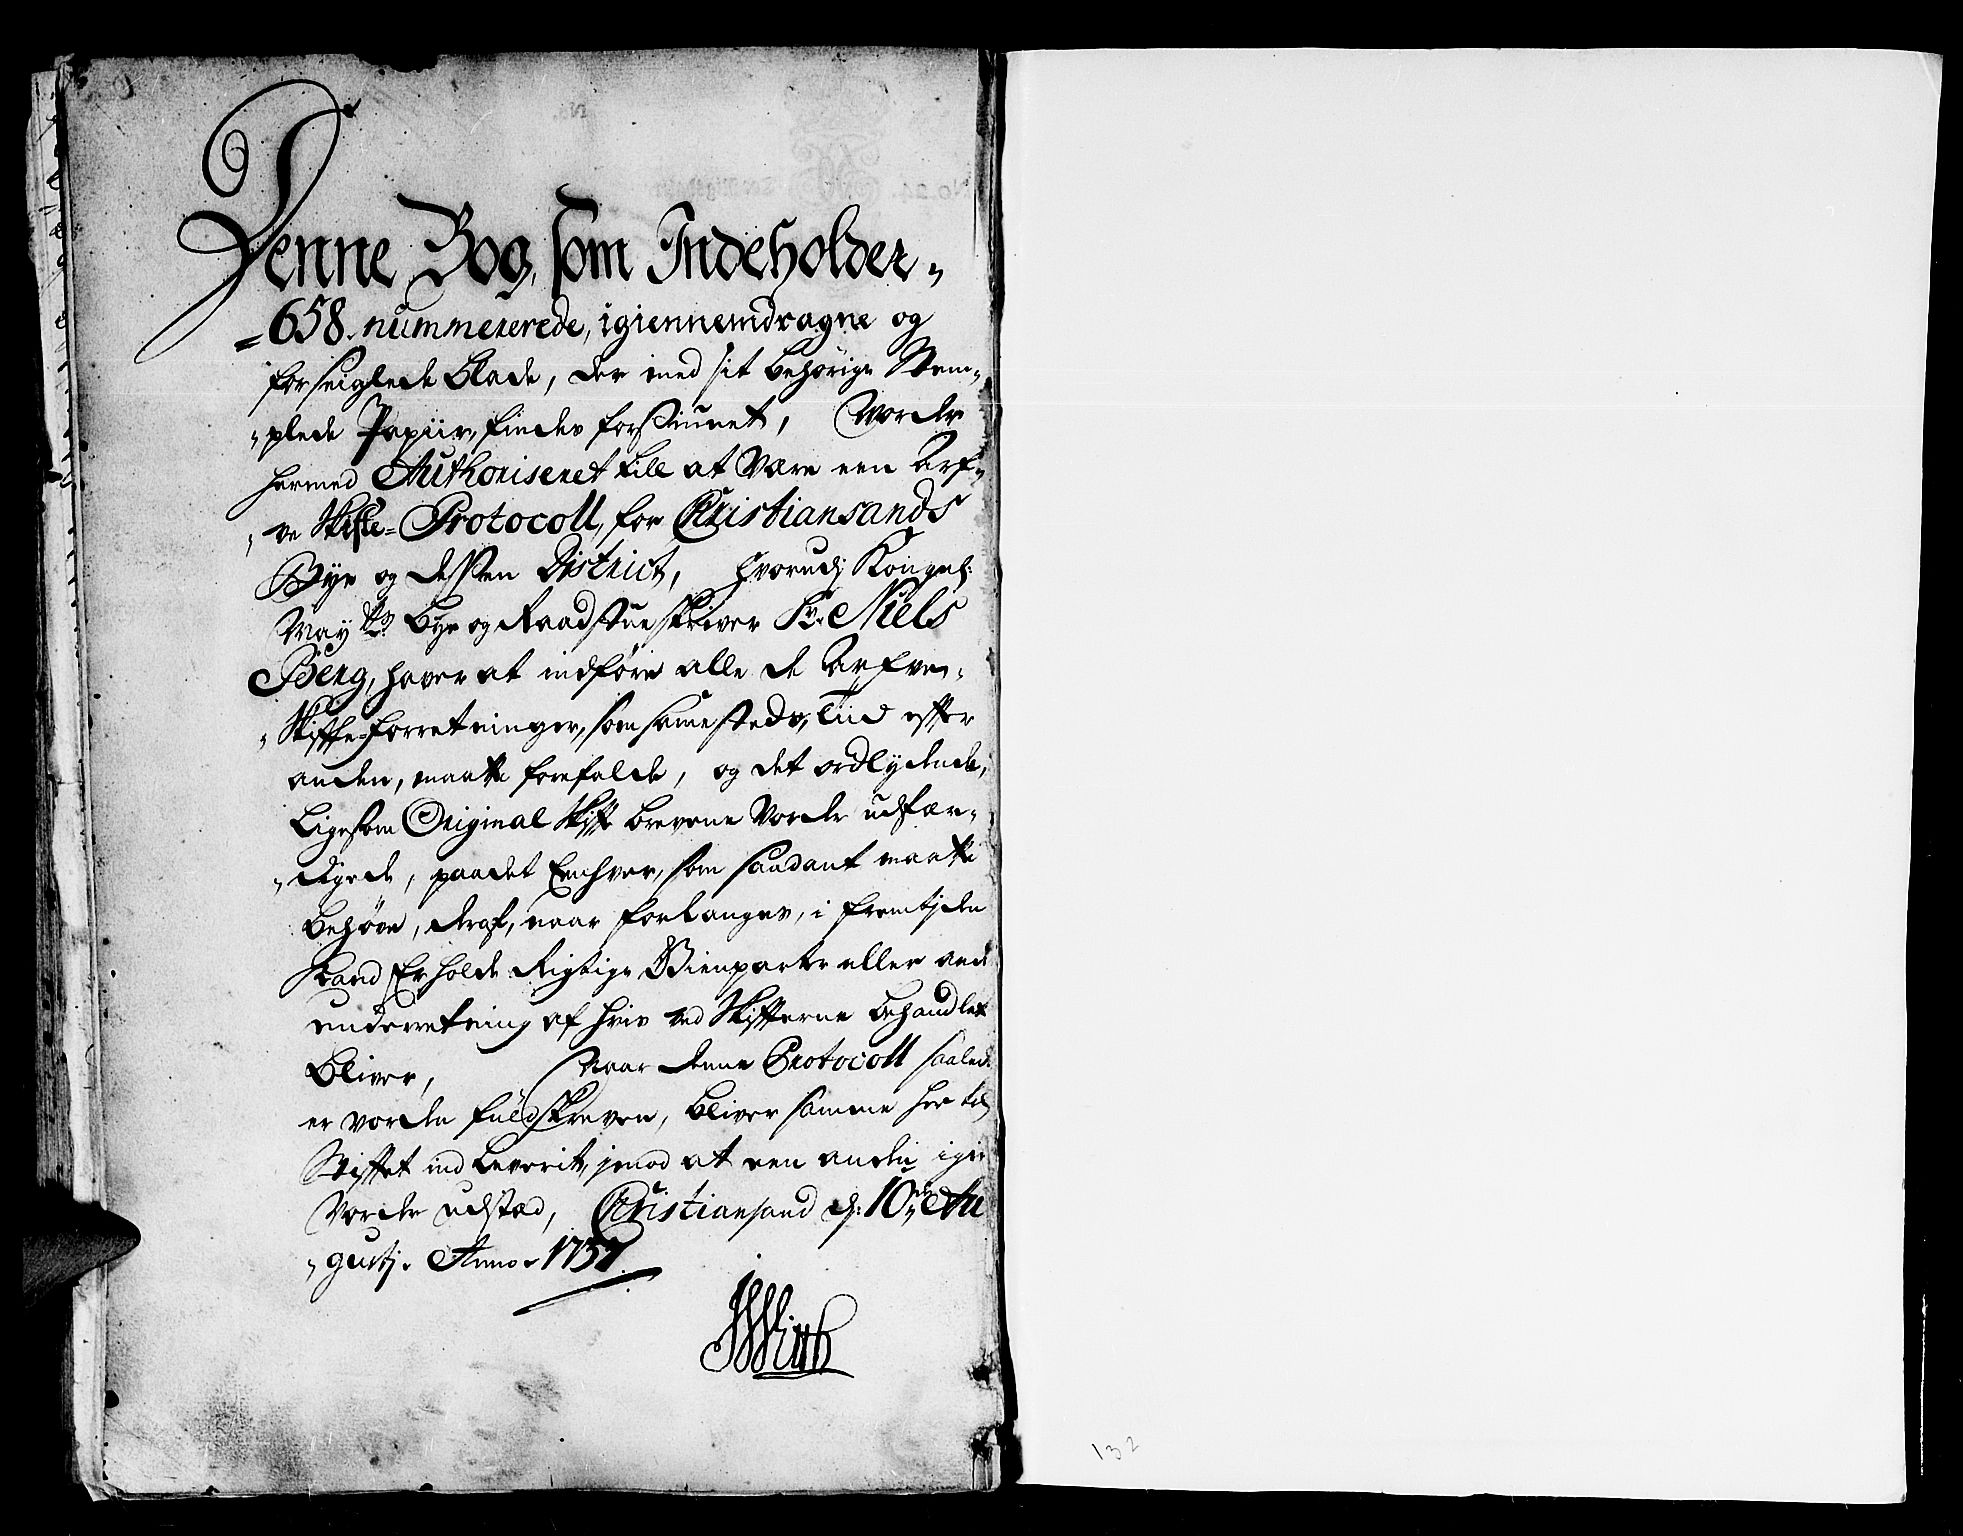 Denne Bog, som Indeholder„
=658. nummererede, igiennemdragne og
forseiglede blade, der med sit behørige Stem„
„plede Papiir, findes forsiunet, Vorder
hermed Authoriseret till at være een Arf„
„ve Skifte=Protocoll, for Christiansands
Bye og dessen District, hvorudj Kongel:
May:ts Bye og Raadstueskriver Sr. Niels
Berg, haver at indføre alle de Arfve„
„Skifte=Forretninger, som samesteds, Tiid efter
anden, maatte forefalde, og det ordlydende,
Ligesom Original Skifte brevene Vorde udfær„
„digede, paadet Enhver, som saadant maatte
behøve, deraf, naar forlanges, i fremtjden
kand Erholde Rigtige Gienparter eller anden
underretning af hvis ved Skifterne behandlet
bliver, Naar denne Protocoll saaled
er vorden fuldskreven, bliver samme her til
Stiftet ind leverit, jmod at een anden igie
Vorder udstæd, Christiansand d: 10de Au
„gustj. Anno. 1737.
132